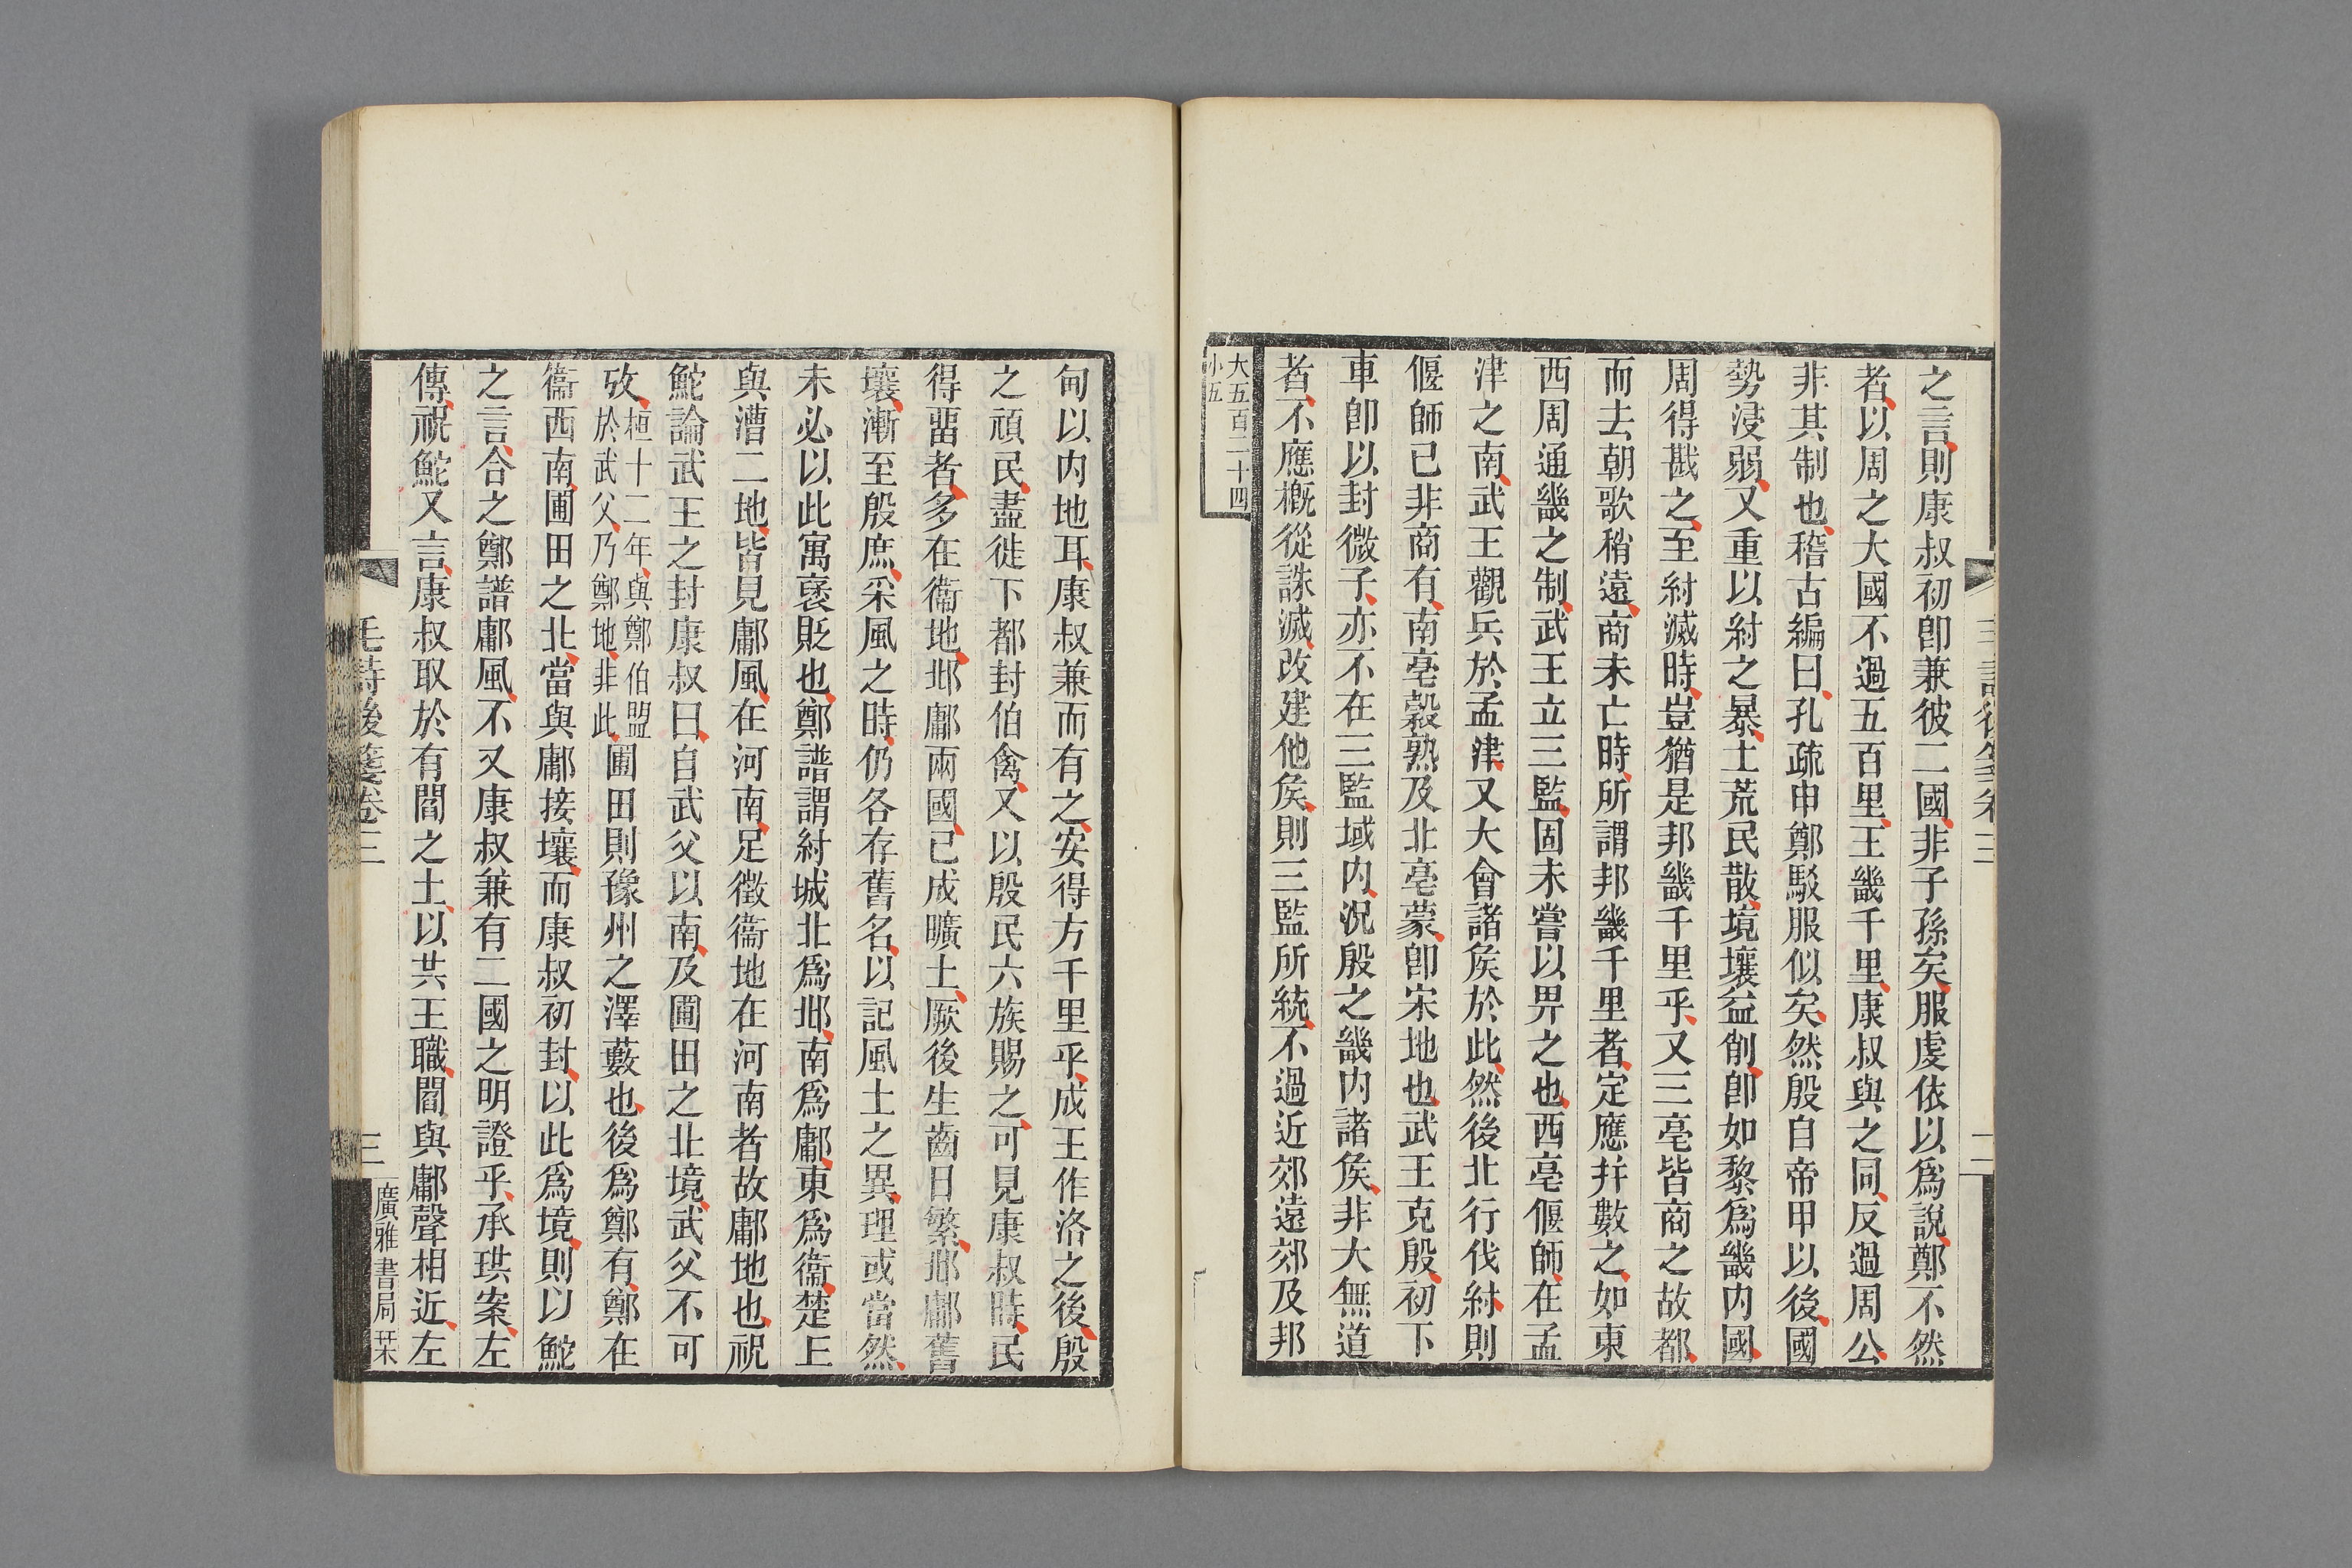 之言則康叔初卽兼彼二國非子孫矣服虔依以爲說鄭不然
者以周之大國不過五百里王畿千里康叔與之同反過周公
非其制也稽古編曰孔疏申鄭駁服似矣然殷自帝甲以後國
勢浸弱又重以紂之暴土荒民散境壤益削卽如黎爲畿内國
周得戡之至紂滅時豈猶是邦畿千里乎又三亳皆商之故都
而去朝歌稍遠商未亡時所謂邦畿千里者定應幷數之如東
西周通畿之制武王立三監固未嘗以畀之也西亳偃師在孟
津之南武王觀兵於孟津又大會諸矦於此然後北行伐紂則
偃師已非商有南亳穀熟及北亳蒙卽宋地也武王克殷初下
車卽以封微子亦不在三監域内況殷之畿内諸矦非大無道
者不應概從誅滅改建他矦則三監所統不過近郊遠郊及邦
大五百二十四
小五
甸以内地耳康叔兼而有之安得方千里乎成王作洛之後殷
之頑民盡徙下都封伯禽又以殷民六族賜之可見康叔時民
得畱者多在衞地邶鄘兩國已成曠土厥後生齒日繁邶鄘舊
壤漸至殷庶采風之時仍各存舊名以記風土之異理或當然
未必以此寓襃貶也鄭譜謂紂城北爲邶南爲鄘東爲衞楚丄
與漕二地皆見鄘風在河南足徵衞地在河南者故鄘地也祝
鮀論武王之封康叔曰自武父以南及圃田之北境武父不可
攷桓十二年與鄭伯盟於武父乃鄭地非此圃田則豫州之澤藪也後爲鄭有鄭在
衞西南圃田之北當與鄘接壤而康叔初封以此爲境則以鮀
之言合之鄭譜鄘風不又康叔兼有二國之明證乎承珙案左
傳祝鮀又言康叔取於有閻之土以共王職閻與鄘聲相近左
毛詩後箋卷三
三
廣雅書局栞